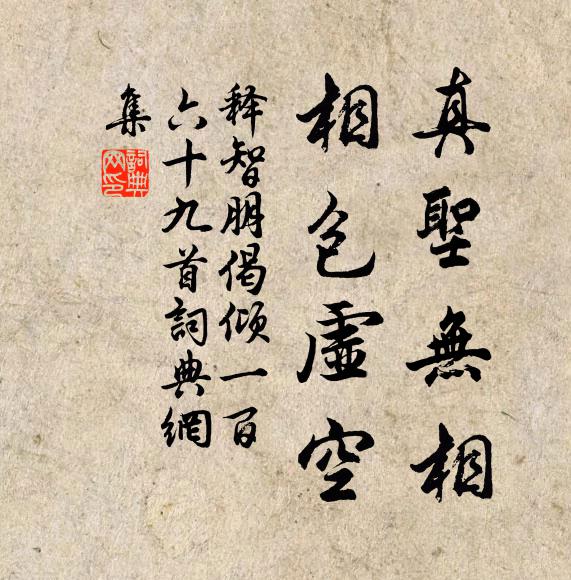 真聖無相
相包虛空
释智朋偈傾一百
六十九首詞典網
集
詞典網印